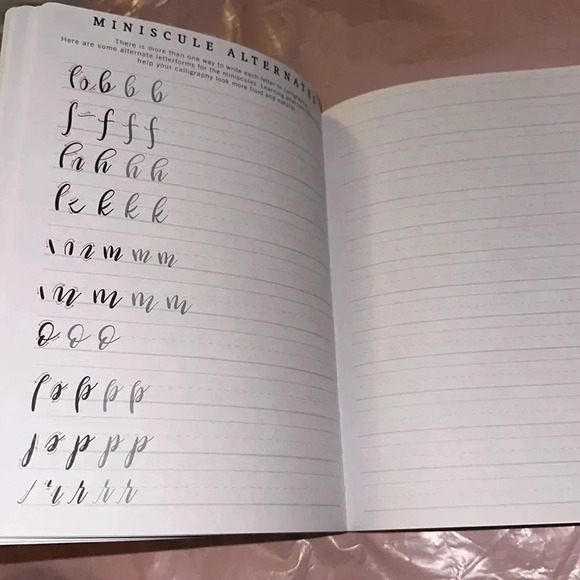 MINISCULE ALTERNATES
There is more than one way to write each letter in calligraphy.
Here are some alternate letterforms for the miniscules. Learning
help your calligraphy look more fluid and natural!
b b b
f f f
h h h
k k k
m m m
m m m
o o o
p p p
p p p
r r r